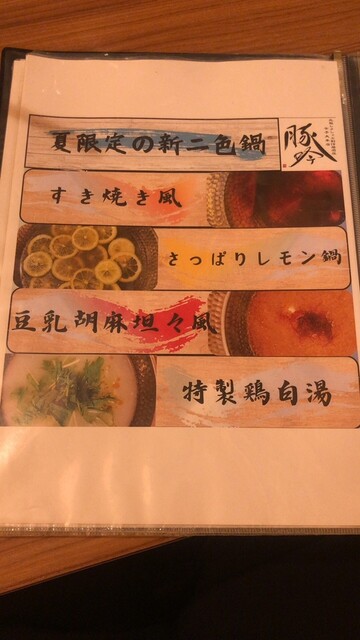 夏限定の新二色鍋
すき焼き風
さっぱりレモン鍋
豆乳胡麻坦々風
特製鶏白湯